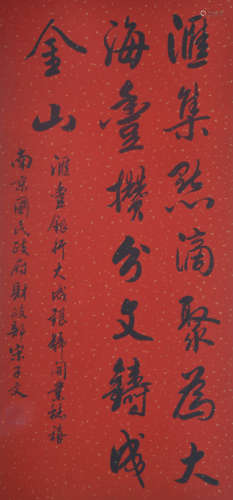 滙集點滴聚為大
海壹攢分文鑄成
金山
滙豐銀行大成銀號開業誌禧
南京國民政府財政部宋子文